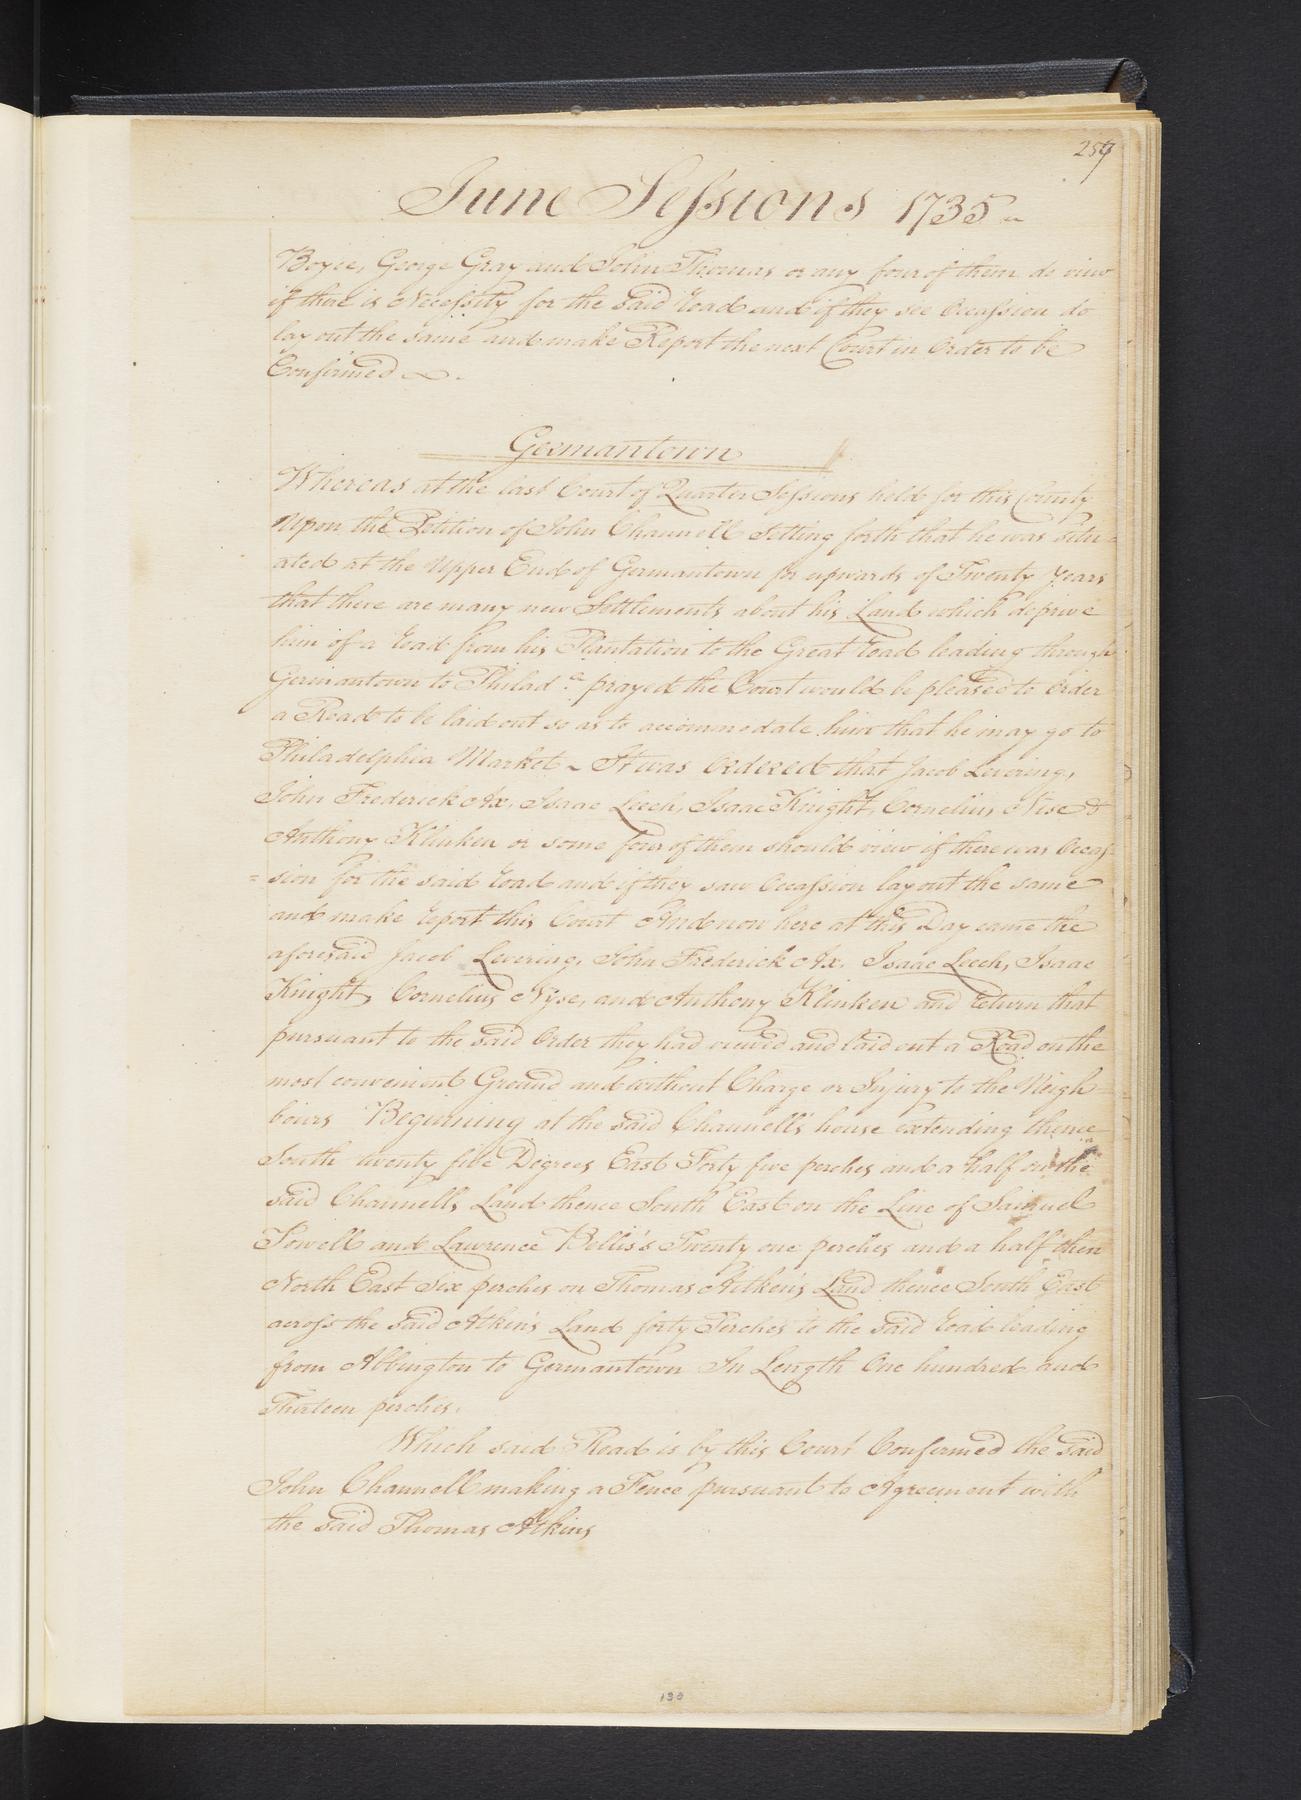 257
June Sessions 1735
Boyce, George Gray and John Thomas or any four of them do view
if there is Necessity for the said road and if they see Occassion do
lay out the same and make Report the next Court in Order to be
Confirmed
Germantown
Whereas at the last Court of Quarter Sessions held for this County
Upon the Petition of John Channell Setting forth that he was Situ=
ated at the Upper End of Germantown for upwards of Twenty Years
that there are many new Settlements about his Land which deprive
him of a road from his Plantation to the Great road leading through
Germantown to Philad.a prayed the Court would be pleased to Order
a Road to be laid out so as to accommodate him that he may go to
Philadelphia Market ~ It was Ordered that Jacob Levering,
John Frederick Ax. Isaac Leech, Isaac Knight, Cornelius Nise &
Anthony Klinken or some four of them should view if there was Occas=
=sion for the said road and if they saw Occassion lay out the same
and make report this Court And now here at this Day came the
aforesaid Jacob Levering, John Frederick Ax. Isaac Leech, Isaac
Knight, Cornelius Nyse, and Anthony Klinken and return that
pursuant to the said Order they had viewed and laid out a Road on the
most convenient Ground and without Charge or Injury to the Neigh
bours Beginning at the said Channell's house extending thence
South twenty five Degrees East Forty five perches and a half on the
said Channells Land thence South East on the Line of Samuel
Powell and Lawrence Bellis's Twenty one perches and a half then
North East Six perches on Thomas Aitkens Land thence South East
across the said Atkin's Land forty Perches to the said road leading
from Abbington to Germantown In Length One hundred and
Thirteen perches.
Which said Road is by this Court Confirmed the said
John Channell making a Fence pursuant to Agreement with
the said Thomas Atkins
130